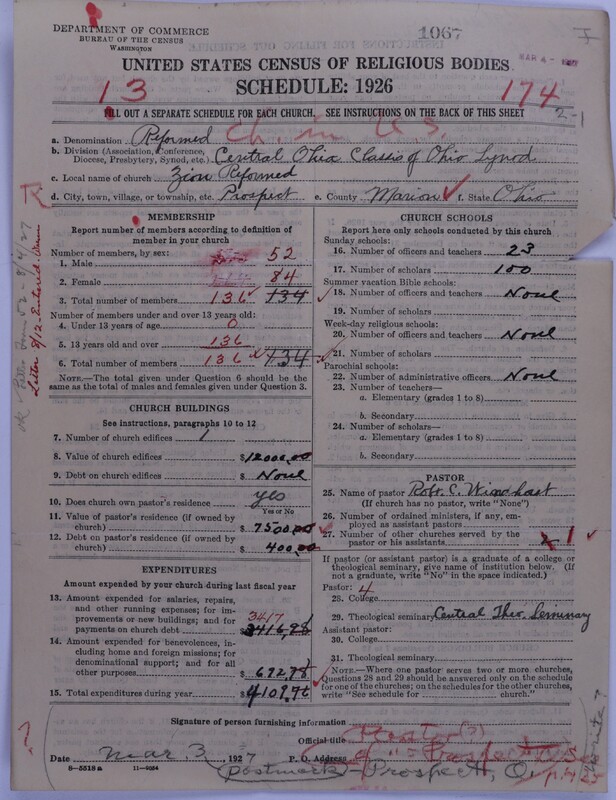 DEPARTMENT OF COMMERCE
BUREAU OF THE CENSUS
WASHINGTON
1067
MAR 4 - 1927
UNITED STATES CENSUS OF RELIGIOUS BODIES
SCHEDULE: 1926
13
174
2-1
FILL OUT A SEPARATE SCHEDULE FOR EACH CHURCH. SEE INSTRUCTIONS ON THE BACK OF THIS SHEET
a. Denomination Reformed Ch. in U.S.
b. Division (Association, Conference, Diocese, Presbytery, Synod, etc.) Central Ohio Classis of Ohio Synod
c. Local name of church Zion Reformed
d. City, town, village, or township, etc. Prospect e. County Marion f. State Ohio
MEMBERSHIP
Report number of members according to definition of
member in your church
Number of members, by sex:
1. Male 52
2. Female 84
3. Total number of members 136 134
Number of members under and over 13 years old:
4. Under 13 years of age 0
5. 13 years old and over 136
6. Total number of members 136 134
NOTE.—The total given under Question 6 should be
the same as the total of males and females given under Question 3.
CHURCH BUILDINGS
See instructions, paragraphs 10 to 12
7. Number of church edifices 1
8. Value of church edifices $12000.00
9. Debt on church edifices $ None
10. Does church own pastor's residence yes
Yes or No
11. Value of pastor's residence (if owned by
church) $7500.00
12. Debt on pastor's residence (if owned by
church) $400.00
EXPENDITURES
Amount expended by your church during last fiscal year
13. Amount expended for salaries, repairs,
and other running expenses; for im-
provements or new buildings; and for
payments on church debt 3417 $3416.98
14. Amount expended for benevolences, in-
cluding home and foreign missions; for
denominational support; and for all
other purposes $692.78
15. Total expenditures during year $4109.76
CHURCH SCHOOLS
Report here only schools conducted by this church
Sunday schools:
16. Number of officers and teachers 23
17. Number of scholars 100
Summer vacation Bible schools:
18. Number of officers and teachers None
19. Number of scholars
Week-day religious schools:
20. Number of officers and teachers None
21. Number of scholars
Parochial schools:
22. Number of administrative officers None
23. Number of teachers—
a. Elementary (grades 1 to 8)
b. Secondary
24. Number of scholars—
a. Elementary (grades 1 to 8)
b. Secondary
PASTOR
25. Name of pastor Robt. C.
(If church has no pastor, write "None")
26. Number of ordained ministers, if any, em-
ployed as assistant pastors
27. Number of other churches served by the
pastor or his assistants 1
If pastor (or assistant pastor) is a graduate of a college or
theological seminary, give name of institution below. (If
not a graduate, write "No" in the space indicated.)
Pastor: 4
28. College
29. Theological seminary Central Theo. Seminary
Assistant pastor:
30. College
31. Theological seminary
NOTE.—Where one pastor serves two or more churches,
Questions 28 and 29 should be answered only on the schedule
for one of the churches; on the schedules for the other churches,
write "See schedule for church."
Signature of person furnishing information
Official title
Date Mar. 3, 1927 P. O. Address
8—5518 a 11—9254
postmark - Prospect, O.
Letter 8/12-Entered.